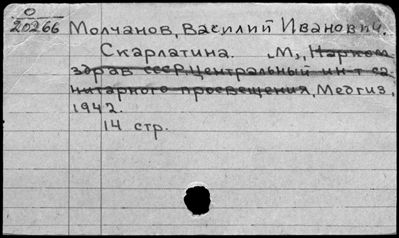 О
20266
Молчанов, Василий Иванович.
Скарлатина. „М„, Нарком
здрав СССР, Центральный ин-т са
нитарного просвещения, Медгиз,
1942.
14 стр.